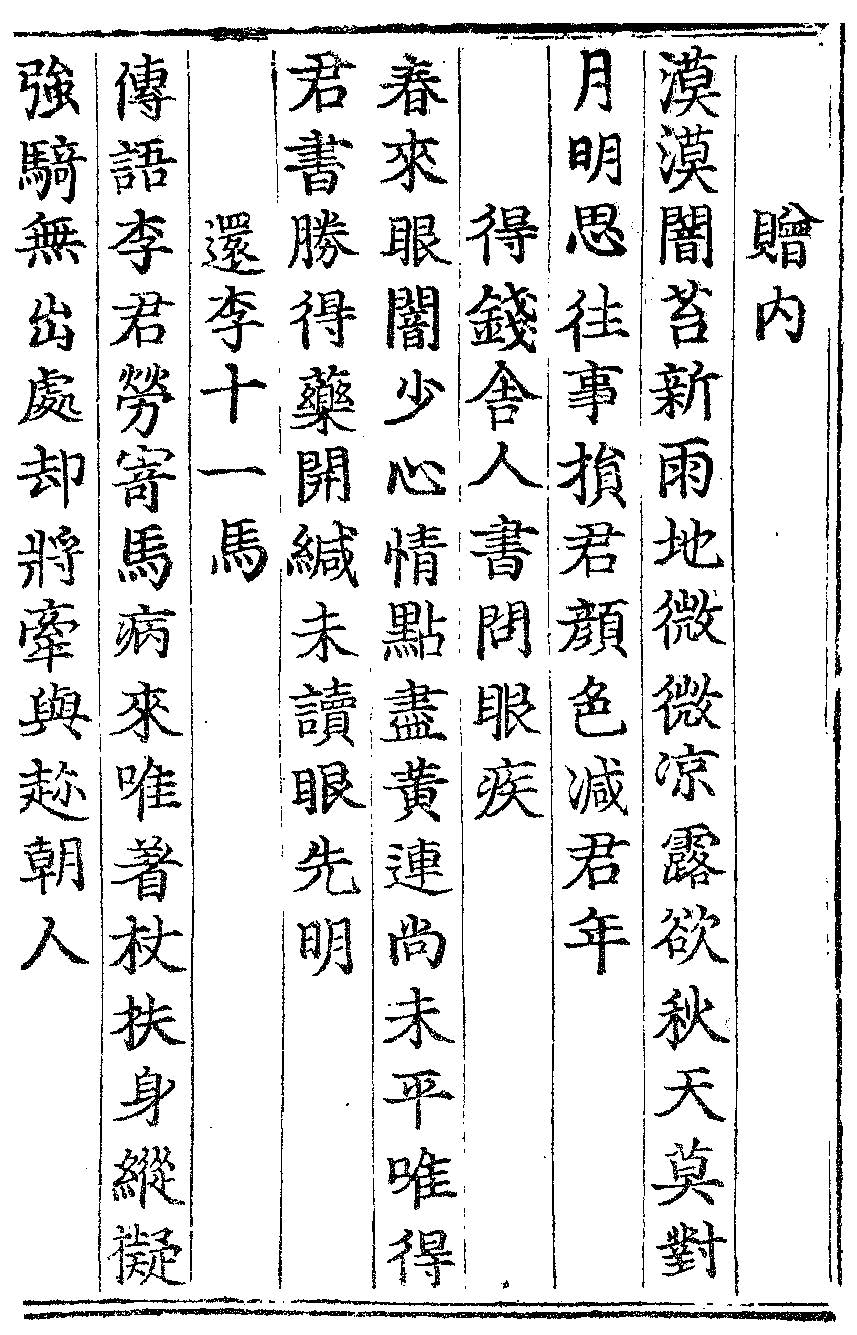 贈内
漠漠闇苔新雨地微微凉露欲秋天莫對
月明思往事損君顔色減君年
得錢舍人書問眼疾
春來眼闇少心情點盡黄連尚未平唯得
君書勝得藥開緘未讀眼先明
還李十一馬
傳語李君勞寄馬病來唯着杖扶身縱擬
強騎無出處却將牽與趂朝人